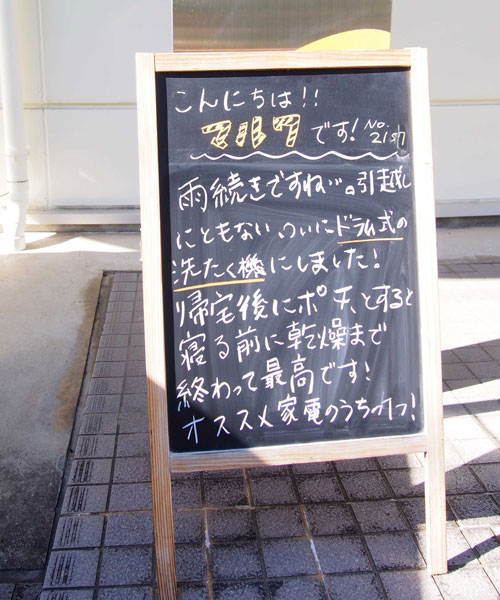 こんにちは!!
マルクです! No.
21sh
雨続きですね…。引越し
にともない、ついにドラム式の
洗たく機にしました!
帰宅後にポチッとすると
寝る前に乾燥まで
終わって最高です!
オススメ家電のうちの1つ!